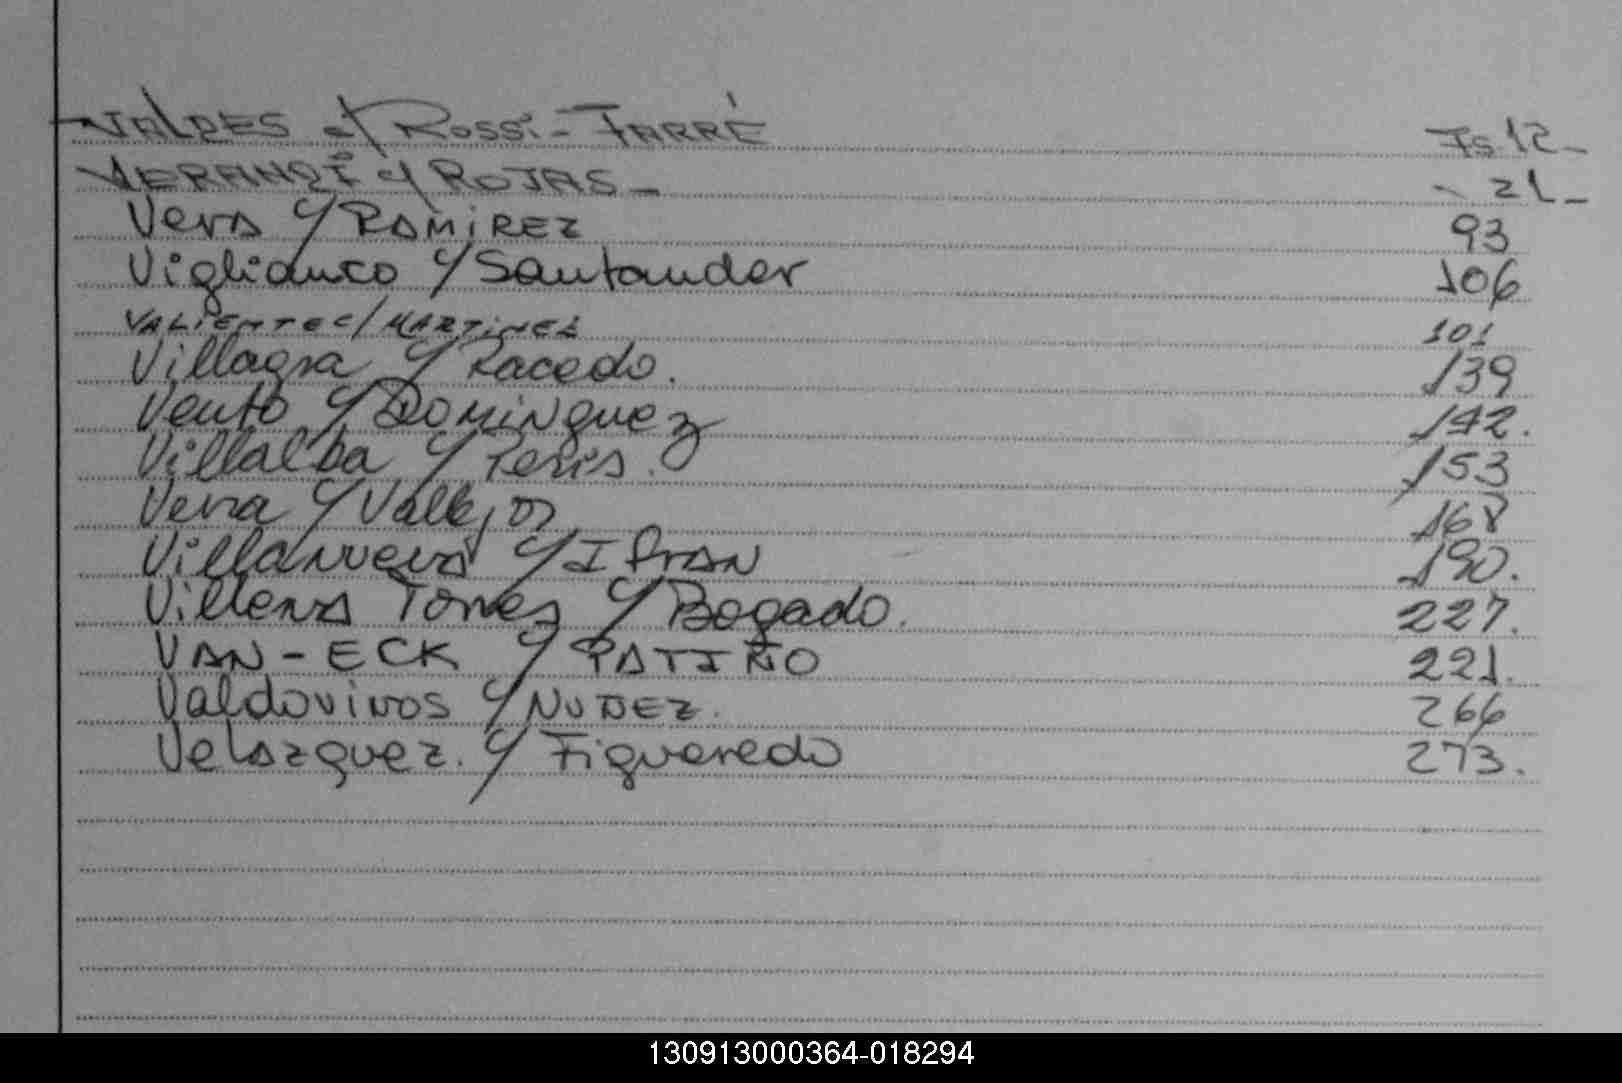 VALDES c/ ROSSI-FARRÉ Fs 12_
VERANDI c/ ROJAS_ 21_
Vera c/ RAMIREZ 93
Viglianco c/ Santander 106
VALIENTE c/ MARTINEZ 101
Villagra c/ Racedo. 139
Vento c/ DOMINguez 142.
Villalba c/ Peris. 153
Vera c/ Vallejos 168
Villanueva c/ IfrAN 190.
Villena Torres c/ Bogado. 227.
VAN-ECK c/ PATIÑO 221.
Valdovinos c/ NUÑEZ. 266
Velazquez. c/ Figueredo 273.
130913000364-018294